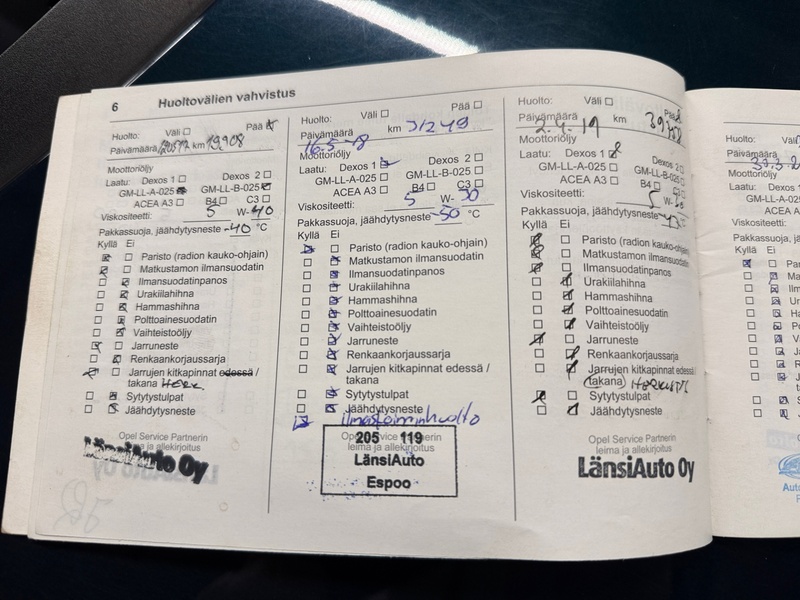 6 Huoltovälien vahvistus
Huolto: Väli ☐ Pää ☒
Päivämäärä km 19908
Moottoriöljy
Laatu: Dexos 1 ☐ Dexos 2 ☐
GM-LL-A-025 GM-LL-B-025 ☒
ACEA A3 ☐ B4 ☐ C3 ☐
Viskositeetti: 5 W-40
Pakkassuoja, jäähdytysneste -40 °C
Kyllä Ei
☒ ☐ Paristo (radion kauko-ohjain)
☒ ☐ Matkustamon ilmansuodatin
☐ ☒ Ilmansuodatinpanos
☐ ☒ Urakiilahihna
☐ ☒ Hammashihna
☐ ☒ Polttoainesuodatin
☐ ☒ Vaihteistoöljy
☒ ☐ Jarruneste
☐ ☒ Renkaankorjaussarja
☒ ☐ Jarrujen kitkapinnat edessä /
takana
☐ ☒ Sytytystulpat
☐ ☒ Jäähdytysneste
Opel Service Partnerin
leima ja allekirjoitus
LänsiAuto Oy
Huolto: Väli ☐ Pää ☐
Päivämäärä 16.5-18 km 31249
Moottoriöljy
Laatu: Dexos 1 ☒ Dexos 2 ☐
GM-LL-A-025 ☐ GM-LL-B-025 ☐
ACEA A3 ☐ B4 ☐ C3 ☐
Viskositeetti: 5 W-30
Pakkassuoja, jäähdytysneste -50 °C
Kyllä Ei
☒ ☐ Paristo (radion kauko-ohjain)
☐ ☒ Matkustamon ilmansuodatin
☐ ☒ Ilmansuodatinpanos
☐ ☒ Urakiilahihna
☐ ☒ Hammashihna
☐ ☒ Polttoainesuodatin
☐ ☒ Vaihteistoöljy
☐ ☒ Jarruneste
☐ ☒ Renkaankorjaussarja
☐ ☒ Jarrujen kitkapinnat edessä /
takana
☐ ☒ Sytytystulpat
☐ ☒ Jäähdytysneste
☒ ilmastoinninhuolto
Opel Service Partnerin
leima ja allekirjoitus
205 119
LänsiAuto
Espoo
Huolto: Väli ☐ Pää ☒
Päivämäärä 2.4.19 km
Moottoriöljy
Laatu: Dexos 1 ☒ Dexos 2 ☐
GM-LL-A-025 ☐ GM-LL-B-025 ☐
ACEA A3 ☐ B4 ☐ C3 ☐
Viskositeetti: 5 W-
Pakkassuoja, jäähdytysneste
Kyllä Ei
☒ ☐ Paristo (radion kauko-ohjain)
☒ ☐ Matkustamon ilmansuodatin
☒ ☐ Ilmansuodatinpanos
☐ ☒ Urakiilahihna
☐ ☒ Hammashihna
☐ ☒ Polttoainesuodatin
☐ ☒ Vaihteistoöljy
☒ ☐ Jarruneste
☐ ☒ Renkaankorjaussarja
☐ ☒ Jarrujen kitkapinnat edessä /
takana
☒ ☐ Sytytystulpat
☐ ☒ Jäähdytysneste
Opel Service Partnerin
leima ja allekirjoitus
LänsiAuto Oy
Huolto: Väli
Päivämäärä
Moottoriöljy
Laatu: Dexos
GM-LL-A-02
ACEA A
Viskositeetti:
Pakkassuoja, jä
Kyllä Ei